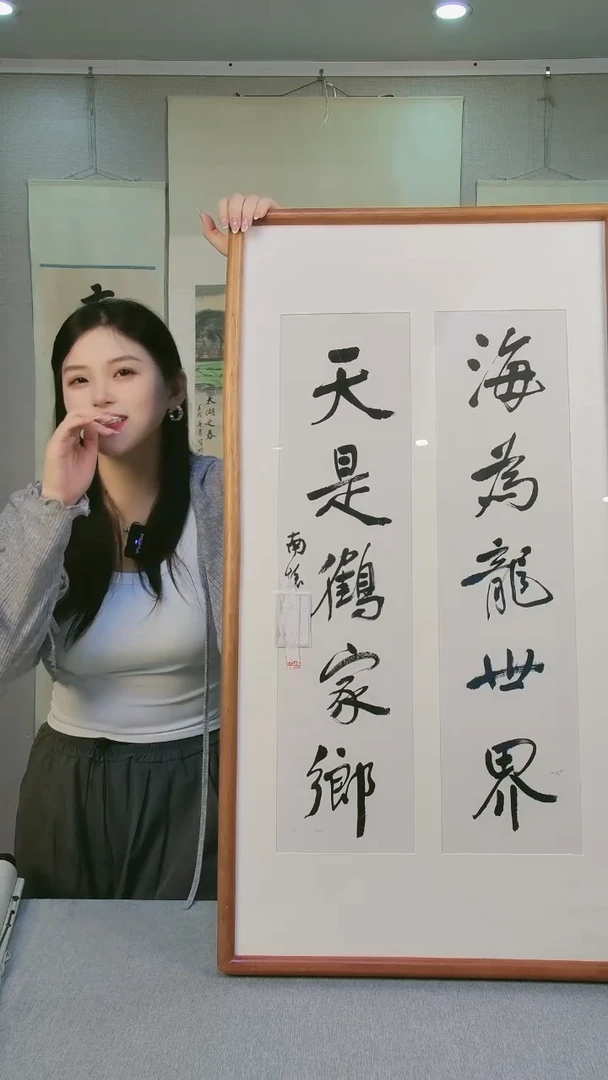 海為龍世界
天是鶴家鄉
南懷
太湖之春